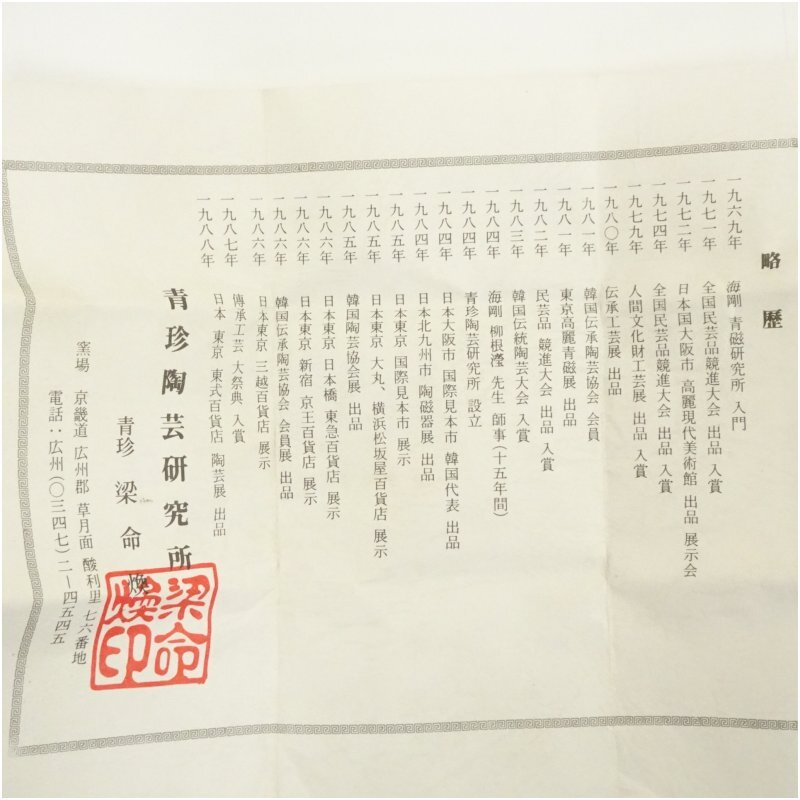 略歴
一九六九年 海剛 青磁研究所 入門
一九七一年 全国民芸品競進大会 出品 入賞
一九七二年 日本国大阪市 高麗現代美術館 出品 展示会
一九七四年 全国民芸品競進大会 出品 入賞
一九七九年 人間文化財工芸展 出品 入賞
一九八〇年 伝承工芸展 出品
一九八一年 韓国伝承陶芸協会 会員
一九八一年 東京高麗青磁展 出品
一九八二年 民芸品 競進大会 出品 入賞
一九八三年 韓国伝統陶芸大会 入賞
一九八四年 海剛 柳根瀅 先生 師事(十五年間)
一九八四年 青珍陶芸研究所 設立
一九八四年 日本大阪市 国際見本市 韓国代表 出品
一九八四年 日本北九州市 陶磁器展 出品
一九八五年 日本東京 国際見本市 展示
一九八五年 日本東京 大丸、横浜松坂屋百貨店 展示
一九八五年 韓国陶芸協会展 出品
一九八六年 日本東京 日本橋 東急百貨店 展示
一九八六年 日本東京 新宿 京王百貨店 展示
一九八六年 韓国伝承陶芸協会 会員展 出品
一九八六年 日本東京 三越百貨店 展示
一九八七年 傳承工芸 大祭典 入賞
一九八八年 日本 東京 東武百貨店 陶芸展 出品
青珍陶芸研究所
青珍 梁命煥
梁命煥印
窯場 京畿道 広州郡 草月面 酸利里 七六番地
電話：広州(〇三四七)二ー四五四五